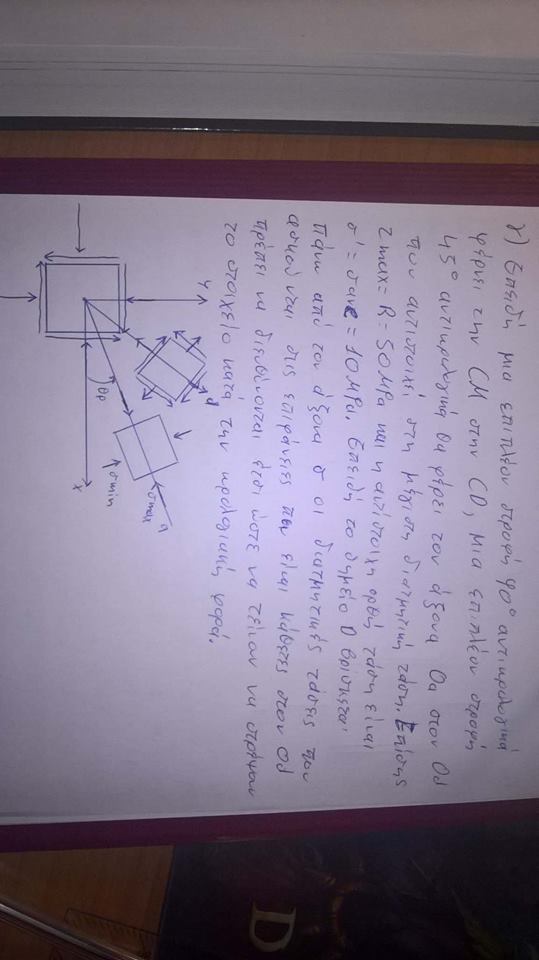 γ) Επειδή μια επιπλέον στροφή 90° αντιωρολογιακά
φέρνει την CM στην CD, μια επιπλέον στροφή
45° αντιωρολογιακά θα φέρει τον άξονα Oa στον Od
που αντιστοιχεί στη μέγιστη διατμητική τάση. Επίσης
τmax = R = 50 MPa και η αντίστοιχη ορθή τάση είναι
σ' = σave = 10 MPa. Επειδή το σημείο D βρίσκεται
πάνω από τον άξονα σ οι διατμητικές τάσεις που
ασκούνται στις επιφάνειες που είναι κάθετες στον Od
πρέπει να διευθύνονται έτσι ώστε να τείνουν να στρέψουν
το στοιχείο κατά την ωρολογιακή φορά.
y
d
θp
a
σmax
σmin
x
D